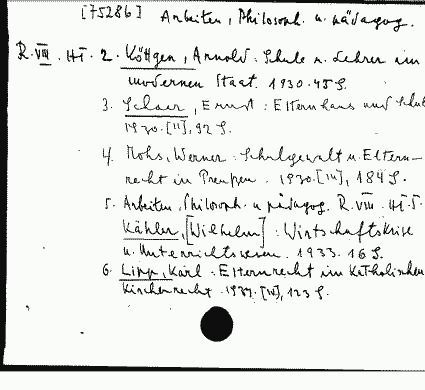 [75286] Arbeiten, Philosoph. u. pädagog.
R. VIII. Hft. 2. Köttgen, Arnold: Schule u. Lehrer im
modernen Staat. 1930. 45 S.
3. Schaer, Ernst: Elternhaus und Schule
1930. [II], 92 S.
4. Mohs, Werner: Schulgewalt u. Eltern-
recht in Preußen. 1930. [IV], 184 S.
5. Arbeiten, Philosoph. u. pädagog. R. VIII. Hft. 5.
Kähler, [Wilhelm]: Wirtschaftskrise
u. Unterrichtswesen. 1933. 16 S.
6. Lipp, Karl: Elternrecht im katholischen
Kirchenrecht. [IV], 123 S.